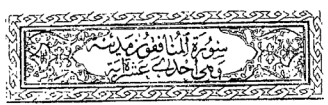 سورة المنافقون مدنية
وهي احدى عشراية